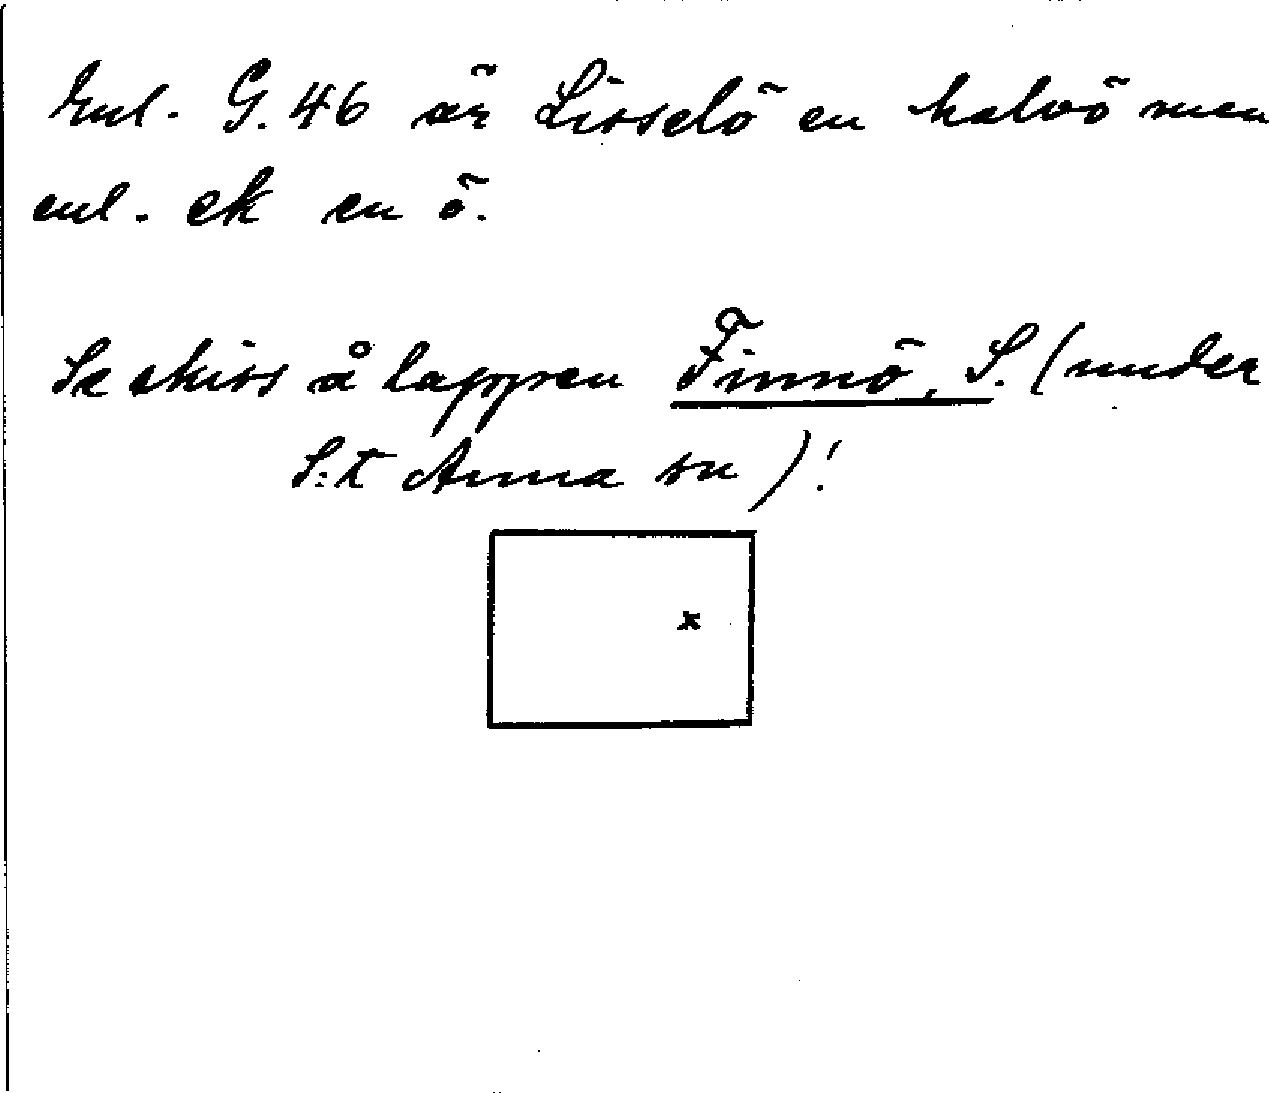 Enl. G. 46 är Lisselö en halvö men
enl. ek en ö.
Se skiss å lappen Finnö, S. (under
S:t Anna sn)!
x